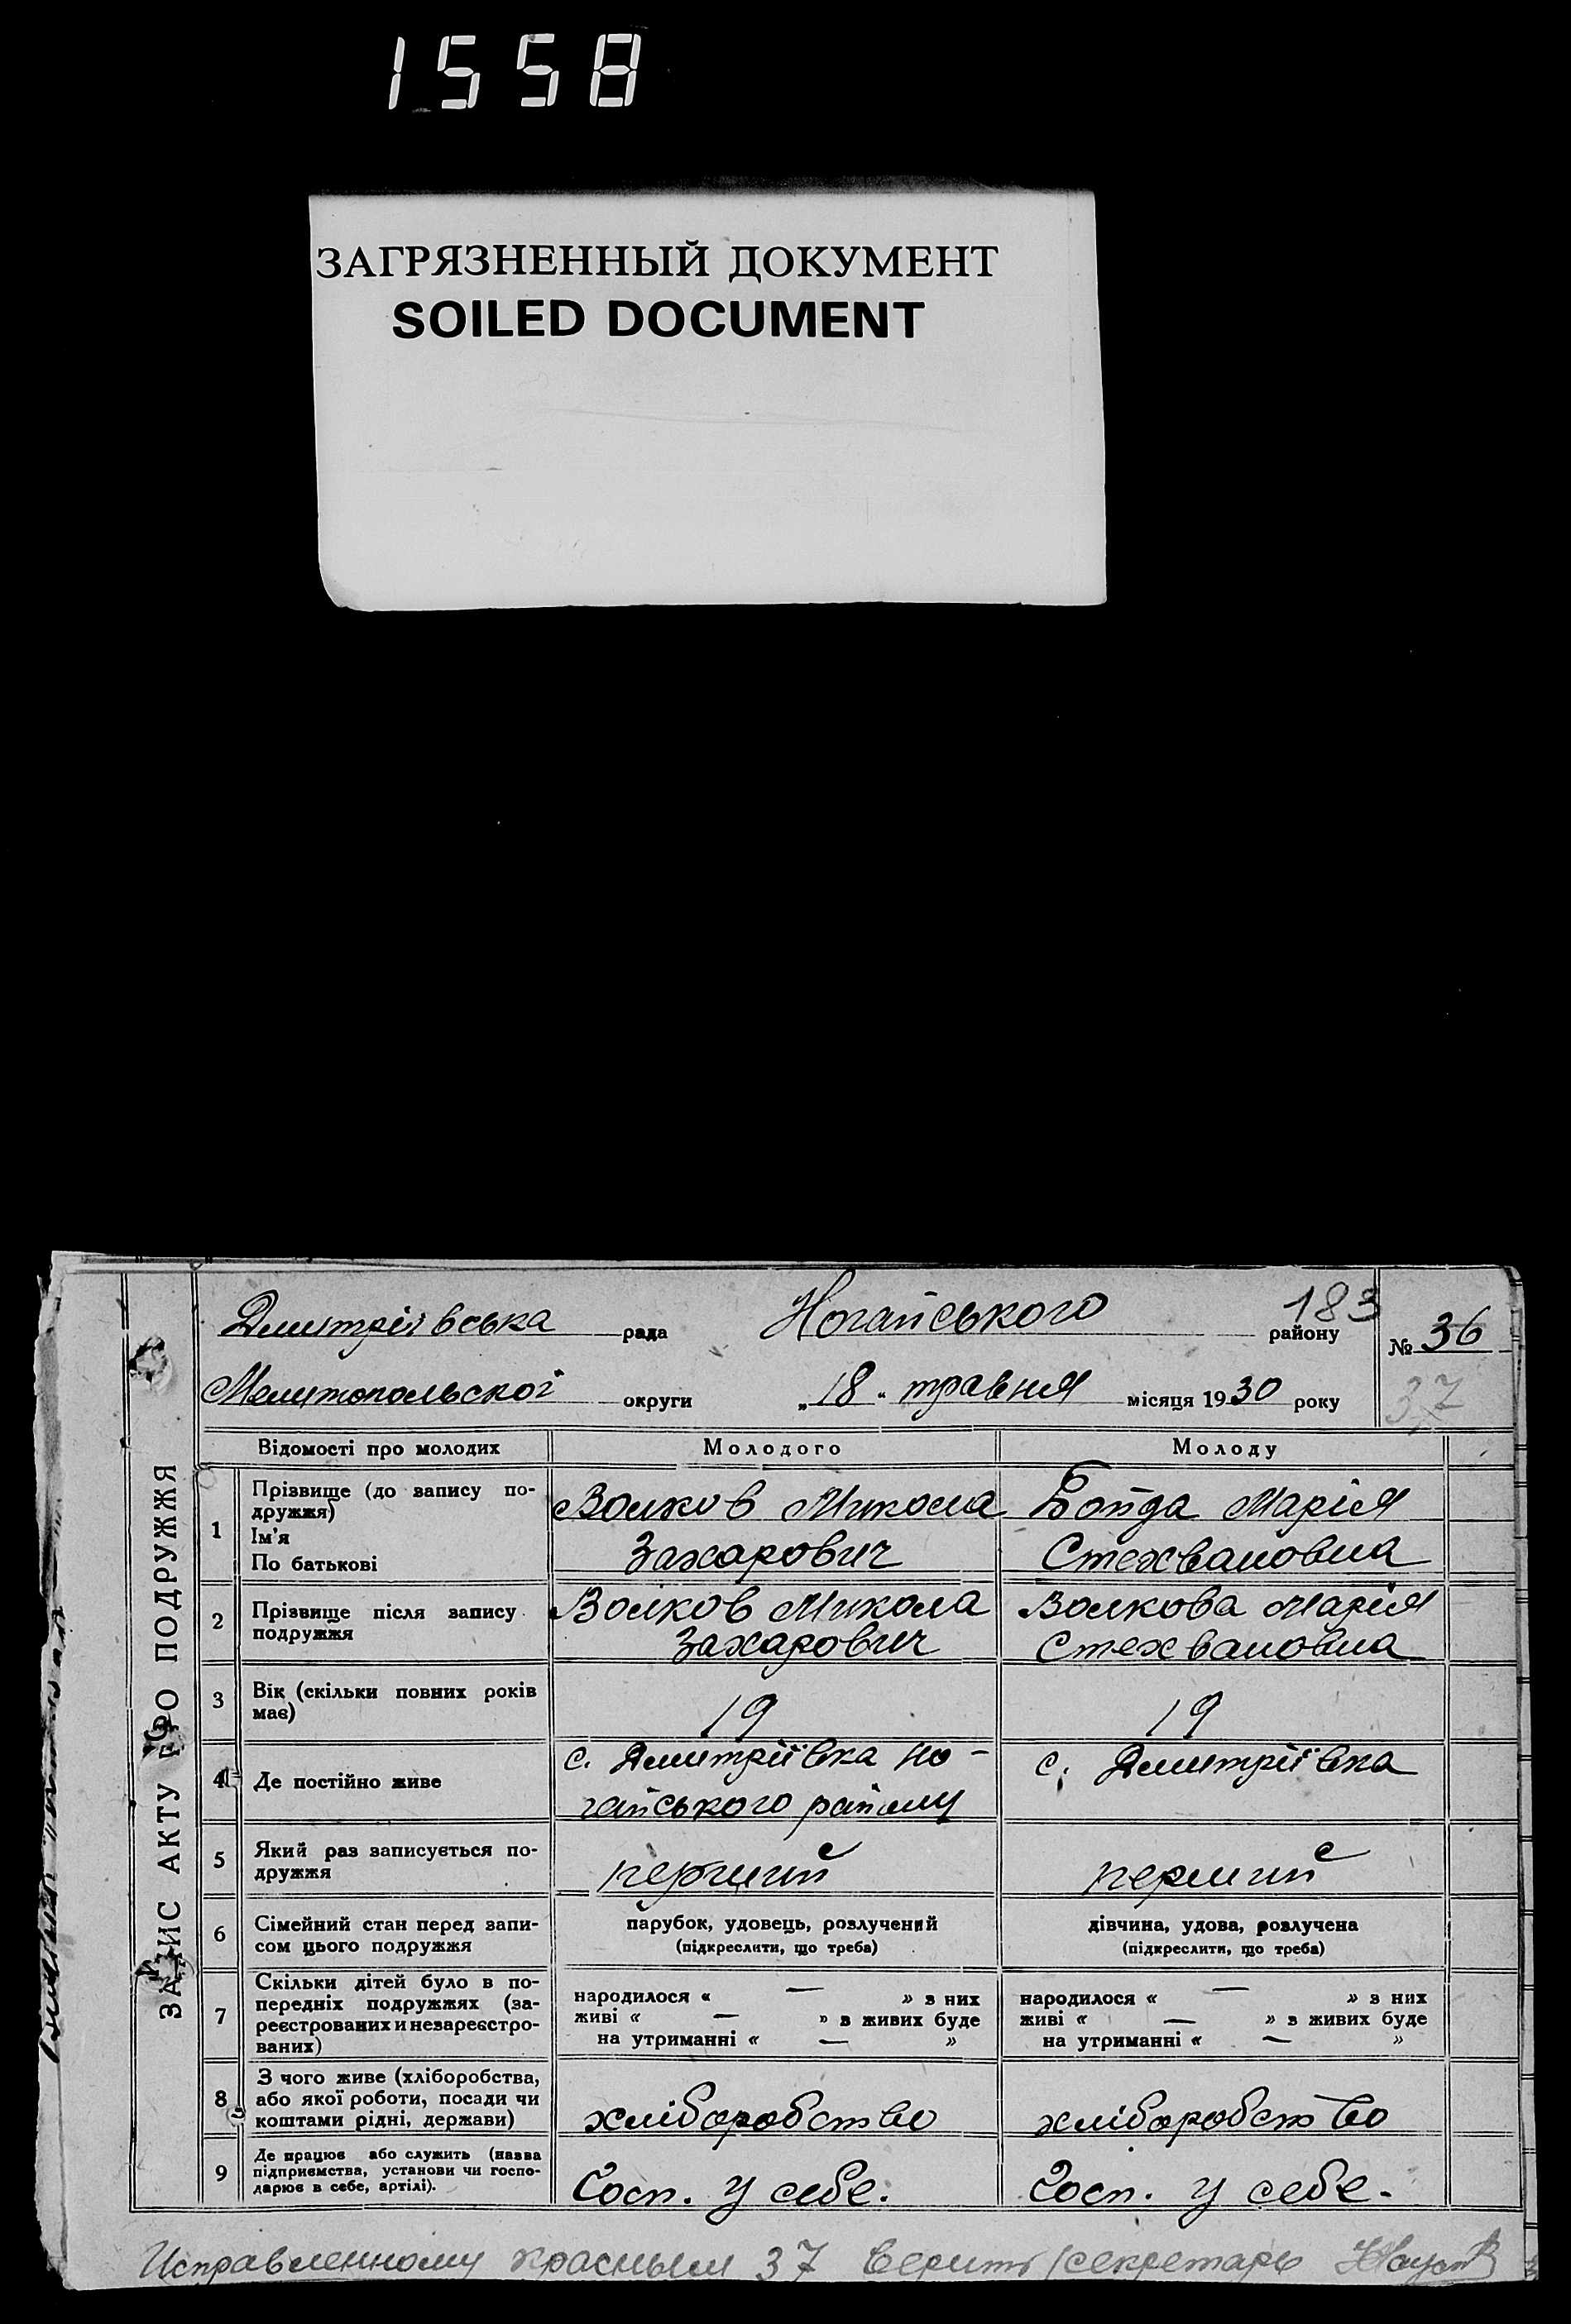 1558
ЗАГРЯЗНЕННЫЙ ДОКУМЕНТ
SOILED DOCUMENT
183
Дмитріївська рада Ногайського району № 36
Мелитопольскої округи „18" травня місяця 1930 року 37
ЗАПИС АКТУ ПРО ПОДРУЖЖЯ
Відомості про молодих Молодого Молоду
1 Прізвище (до запису подружжя) Ім'я По батькові
Волков Микола
Захарович
Бойда Марія
Стехвановна
2 Прізвище після запису подружжя
Волков Микола
Захарович
Волкова Марія
Стехвановна
3 Вік (скільки повних років має) 19 19
4 Де постійно живе
с. Дмитріївка но-
гайського району
с. Дмитріївка
5 Який раз записується по-
дружжя
перший перший
6 Сімейний стан перед запи-
сом цього подружжя
парубок, удовець, розлучений
(підкреслити, що треба)
дівчина, удова, розлучена
(підкреслити, що треба)
7 Скільки дітей було в по-
передніх подружжях (за-
реєстрованих и незареєстро-
ваних)
народилося « — » з них
живі « — » в живих буде
на утриманні « — »
народилося « — » з них
живі « — » в живих буде
на утриманні « — »
8 З чого живе (хліборобства,
або якої роботи, посади чи
коштами рідні, держави)
хліборобство хліборобство
9 Де працює або служить (назва
підприємства, установи чи госпо-
дарює в себе, артілі).
Госп. у себе. Госп. у себе.
Исправленному красным 37 верить секретарь